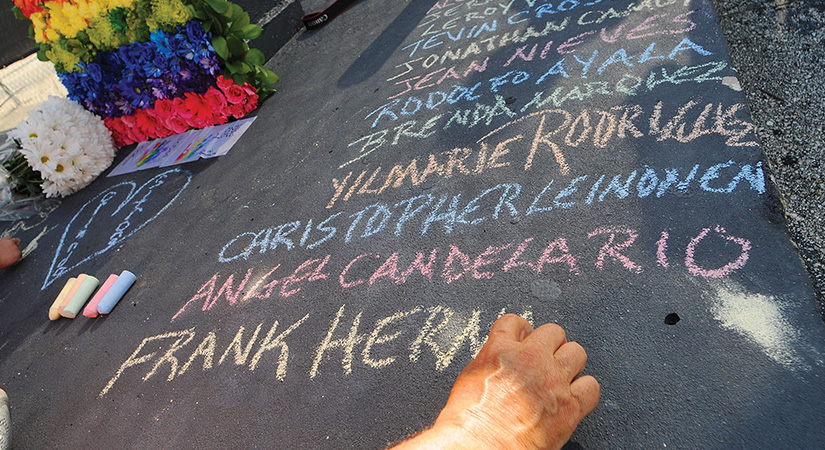 LEROY
TEVIN CROS
JONATHAN CAMU
JEAN NIEVES
RODOLFO AYALA
BRENDA MARQUEZ
YILMARIE RODRIGUES
CHRISTOPHER LEINONEN
ANGEL CANDELARIO
FRANK HERN
Canon